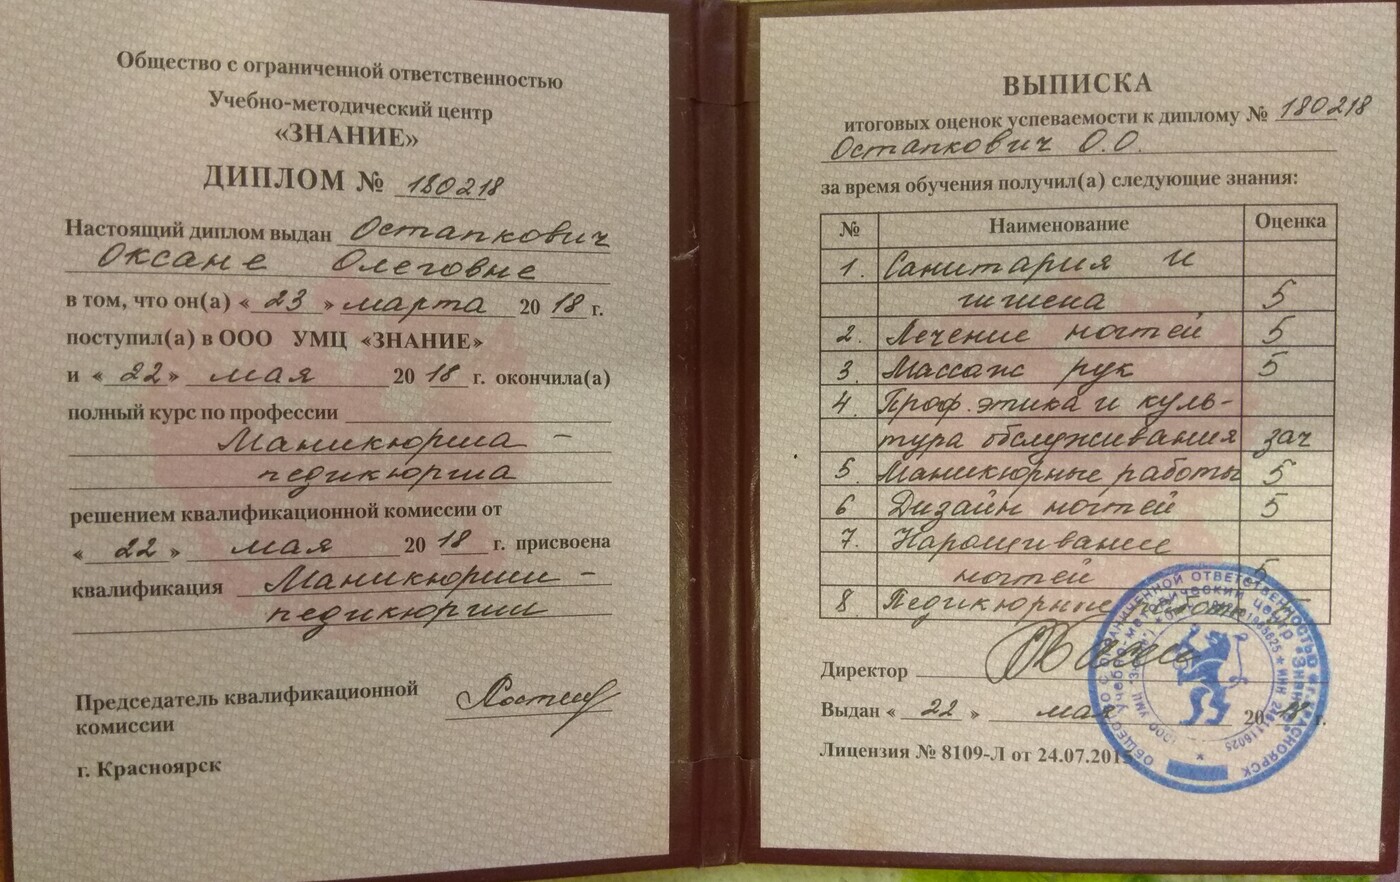 Общество с ограниченной ответственностью
Учебно-методический центр
«ЗНАНИЕ»
ДИПЛОМ № 180218
Настоящий диплом выдан Остапкович
Оксане Олеговне
в том, что он(а) « 23 » марта 20 18 г.
поступил(а) в ООО УМЦ «ЗНАНИЕ»
и « 22 » мая 20 18 г. окончила(а)
полный курс по профессии
Маникюрша –
педикюрша
решением квалификационной комиссии от
« 22 » мая 20 18 г. присвоена
квалификация Маникюрши –
педикюрши
Председатель квалификационной
комиссии
г. Красноярск
ВЫПИСКА
итоговых оценок успеваемости к диплому № 180218
Остапкович О.О.
за время обучения получил(а) следующие знания:
№ Наименование Оценка
1. Санитария и
гигиена 5
2. Лечение ногтей 5
3. Массаж рук 5
4. Проф. этика и куль-
тура обслуживания зач
5. Маникюрные работы 5
6 Дизайн ногтей 5
7. Наращивание
ногтей 5
8. Педикюрные работы 5
Директор
Выдан « 22 » мая 20 18 г.
Лицензия № 8109-Л от 24.07.2015
ОБЩЕСТВО С ОГРАНИЧЕННОЙ ОТВЕТСТВЕННОСТЬЮ г. КРАСНОЯРСК
Учебно-методический центр "Знание"